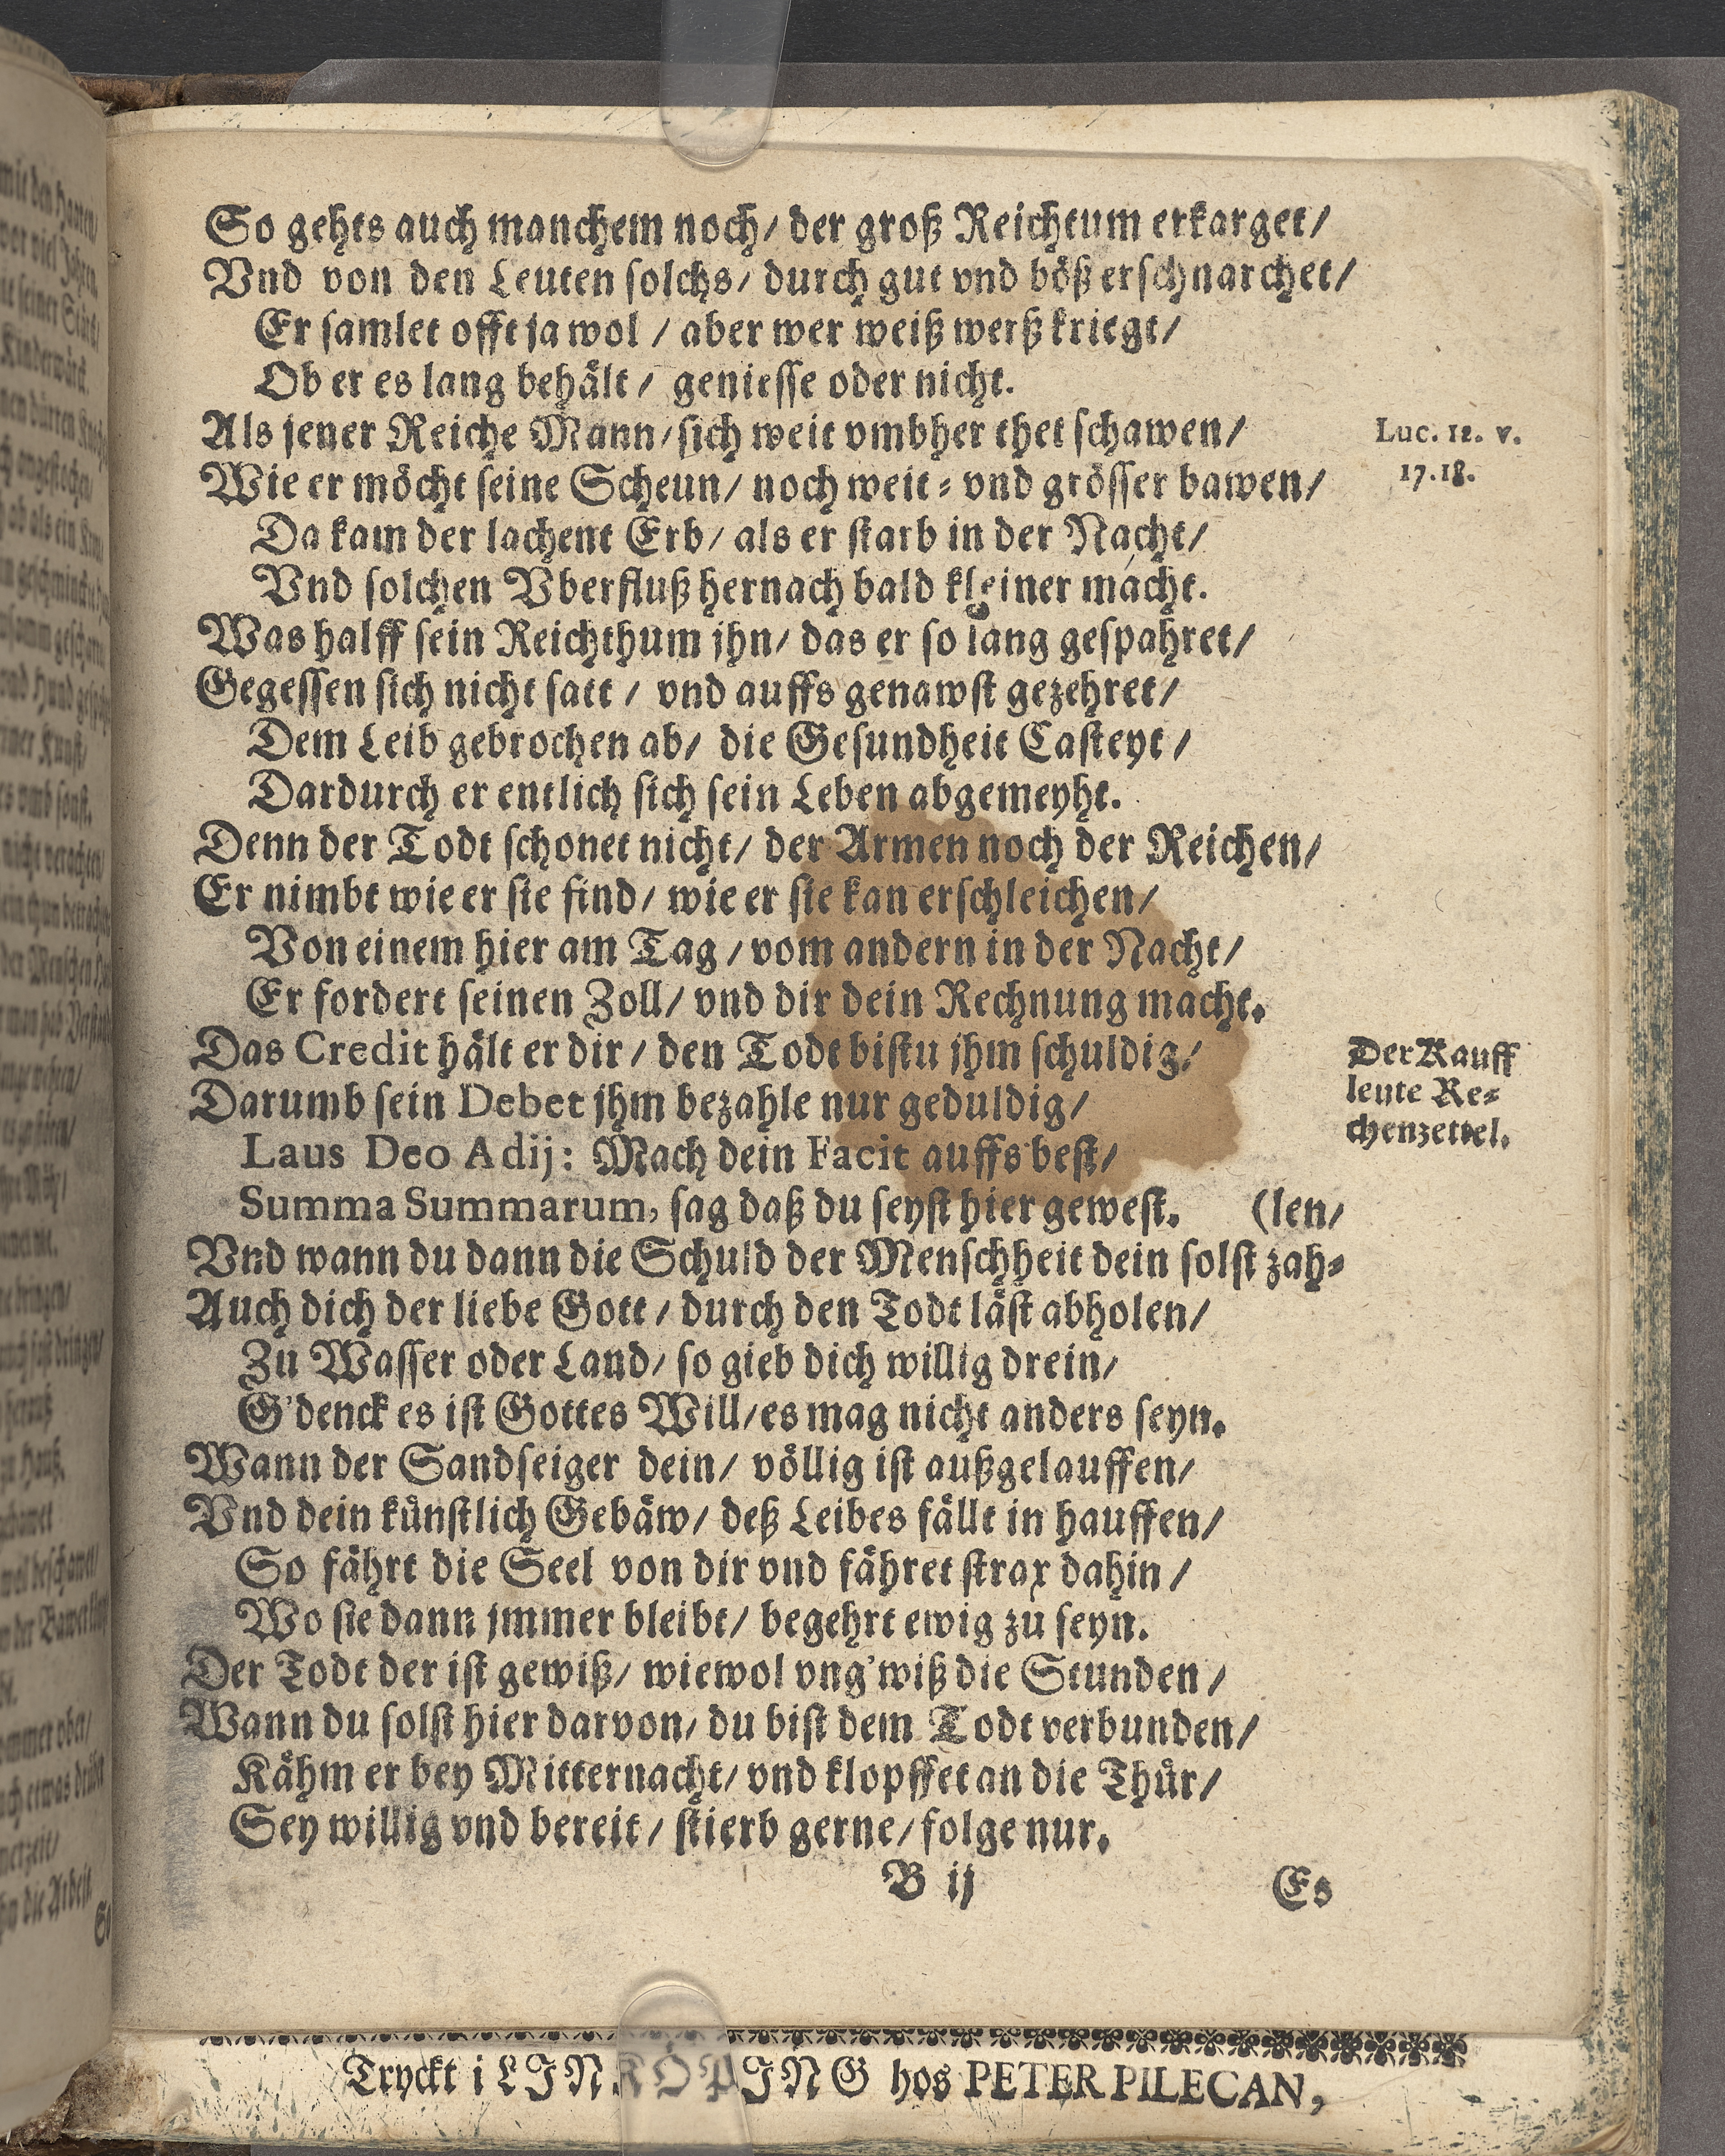 So gehts auch manchem noch/ der groß Reichtum erkarget/
Vnd von den Leuten solchs/ durch gut vnd böß erschnarchet/
Er samlet offt ja wol / aber wer weiß werß kriegt/
Ob er es lang behält / geniesse oder nicht.
Als jener Reiche Mann/ sich weit vmbher thet schawen/
Luc. 12. v.
17.18.
Wie er möcht seine Scheun/ noch weit⸗ vnd grösser bawen/
Da kam der lachent Erb/ als er starb in der Nacht/
Vnd solchen Vberfluß hernach bald kleiner macht.
Was halff sein Reichthum jhn/ das er so lang gespahret/
Gegessen sich nicht satt / vnd auffs genawst gezehret/
Dem Leib gebrochen ab/ die Gesundheit Casteyt /
Dardurch er entlich sich sein Leben abgemeyht.
Denn der Todt schonet nicht/ der Armen noch der Reichen/
Er nimbt wie er sie find/ wie er sie kan erschleichen/
Von einem hier am Tag / vom andern in der Nacht/
Er fordert seinen Zoll/ vnd dir dein Rechnung macht.
Das Credit hält er dir / den Todt bistu jhm schuldig/
Der Kauff
leute Re⸗
chenzettel.
Darumb sein Debet jhm bezahle nur geduldig/
Laus Deo Adij: Mach dein Facit auffs best/
Summa Summarum, sag daß du seyst hier gewest. (len/
Vnd wann du dann die Schuld der Menschheit dein solst zah⸗
Auch dich der liebe Gott / durch den Todt läst abholen/
Zu Wasser oder Land/ so gieb dich willig drein/
G'denck es ist Gottes Will/ es mag nicht anders seyn.
Wann der Sandseiger dein/ völlig ist außgelauffen/
Vnd dein künstlich Gebäw/ deß Leibes fällt in hauffen/
So fährt die Seel von dir vnd fähret strax dahin /
Wo sie dann jmmer bleibt/ begehrt ewig zu seyn.
Der Todt der ist gewiß/ wiewol vng'wiß die Stunden /
Wann du solst hier darvon/ du bist dem Todt verbunden/
Kähm er bey Mitternacht/ vnd klopffet an die Thür/
Sey willig vnd bereit / stierb gerne/ folge nur.
B ij
Es
Tryckt i LINKÖPING hos PETER PILECAN,